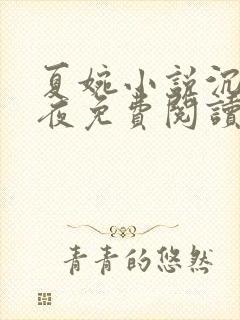 夏婉小説沉
夜免費閱讀
青青的悠然